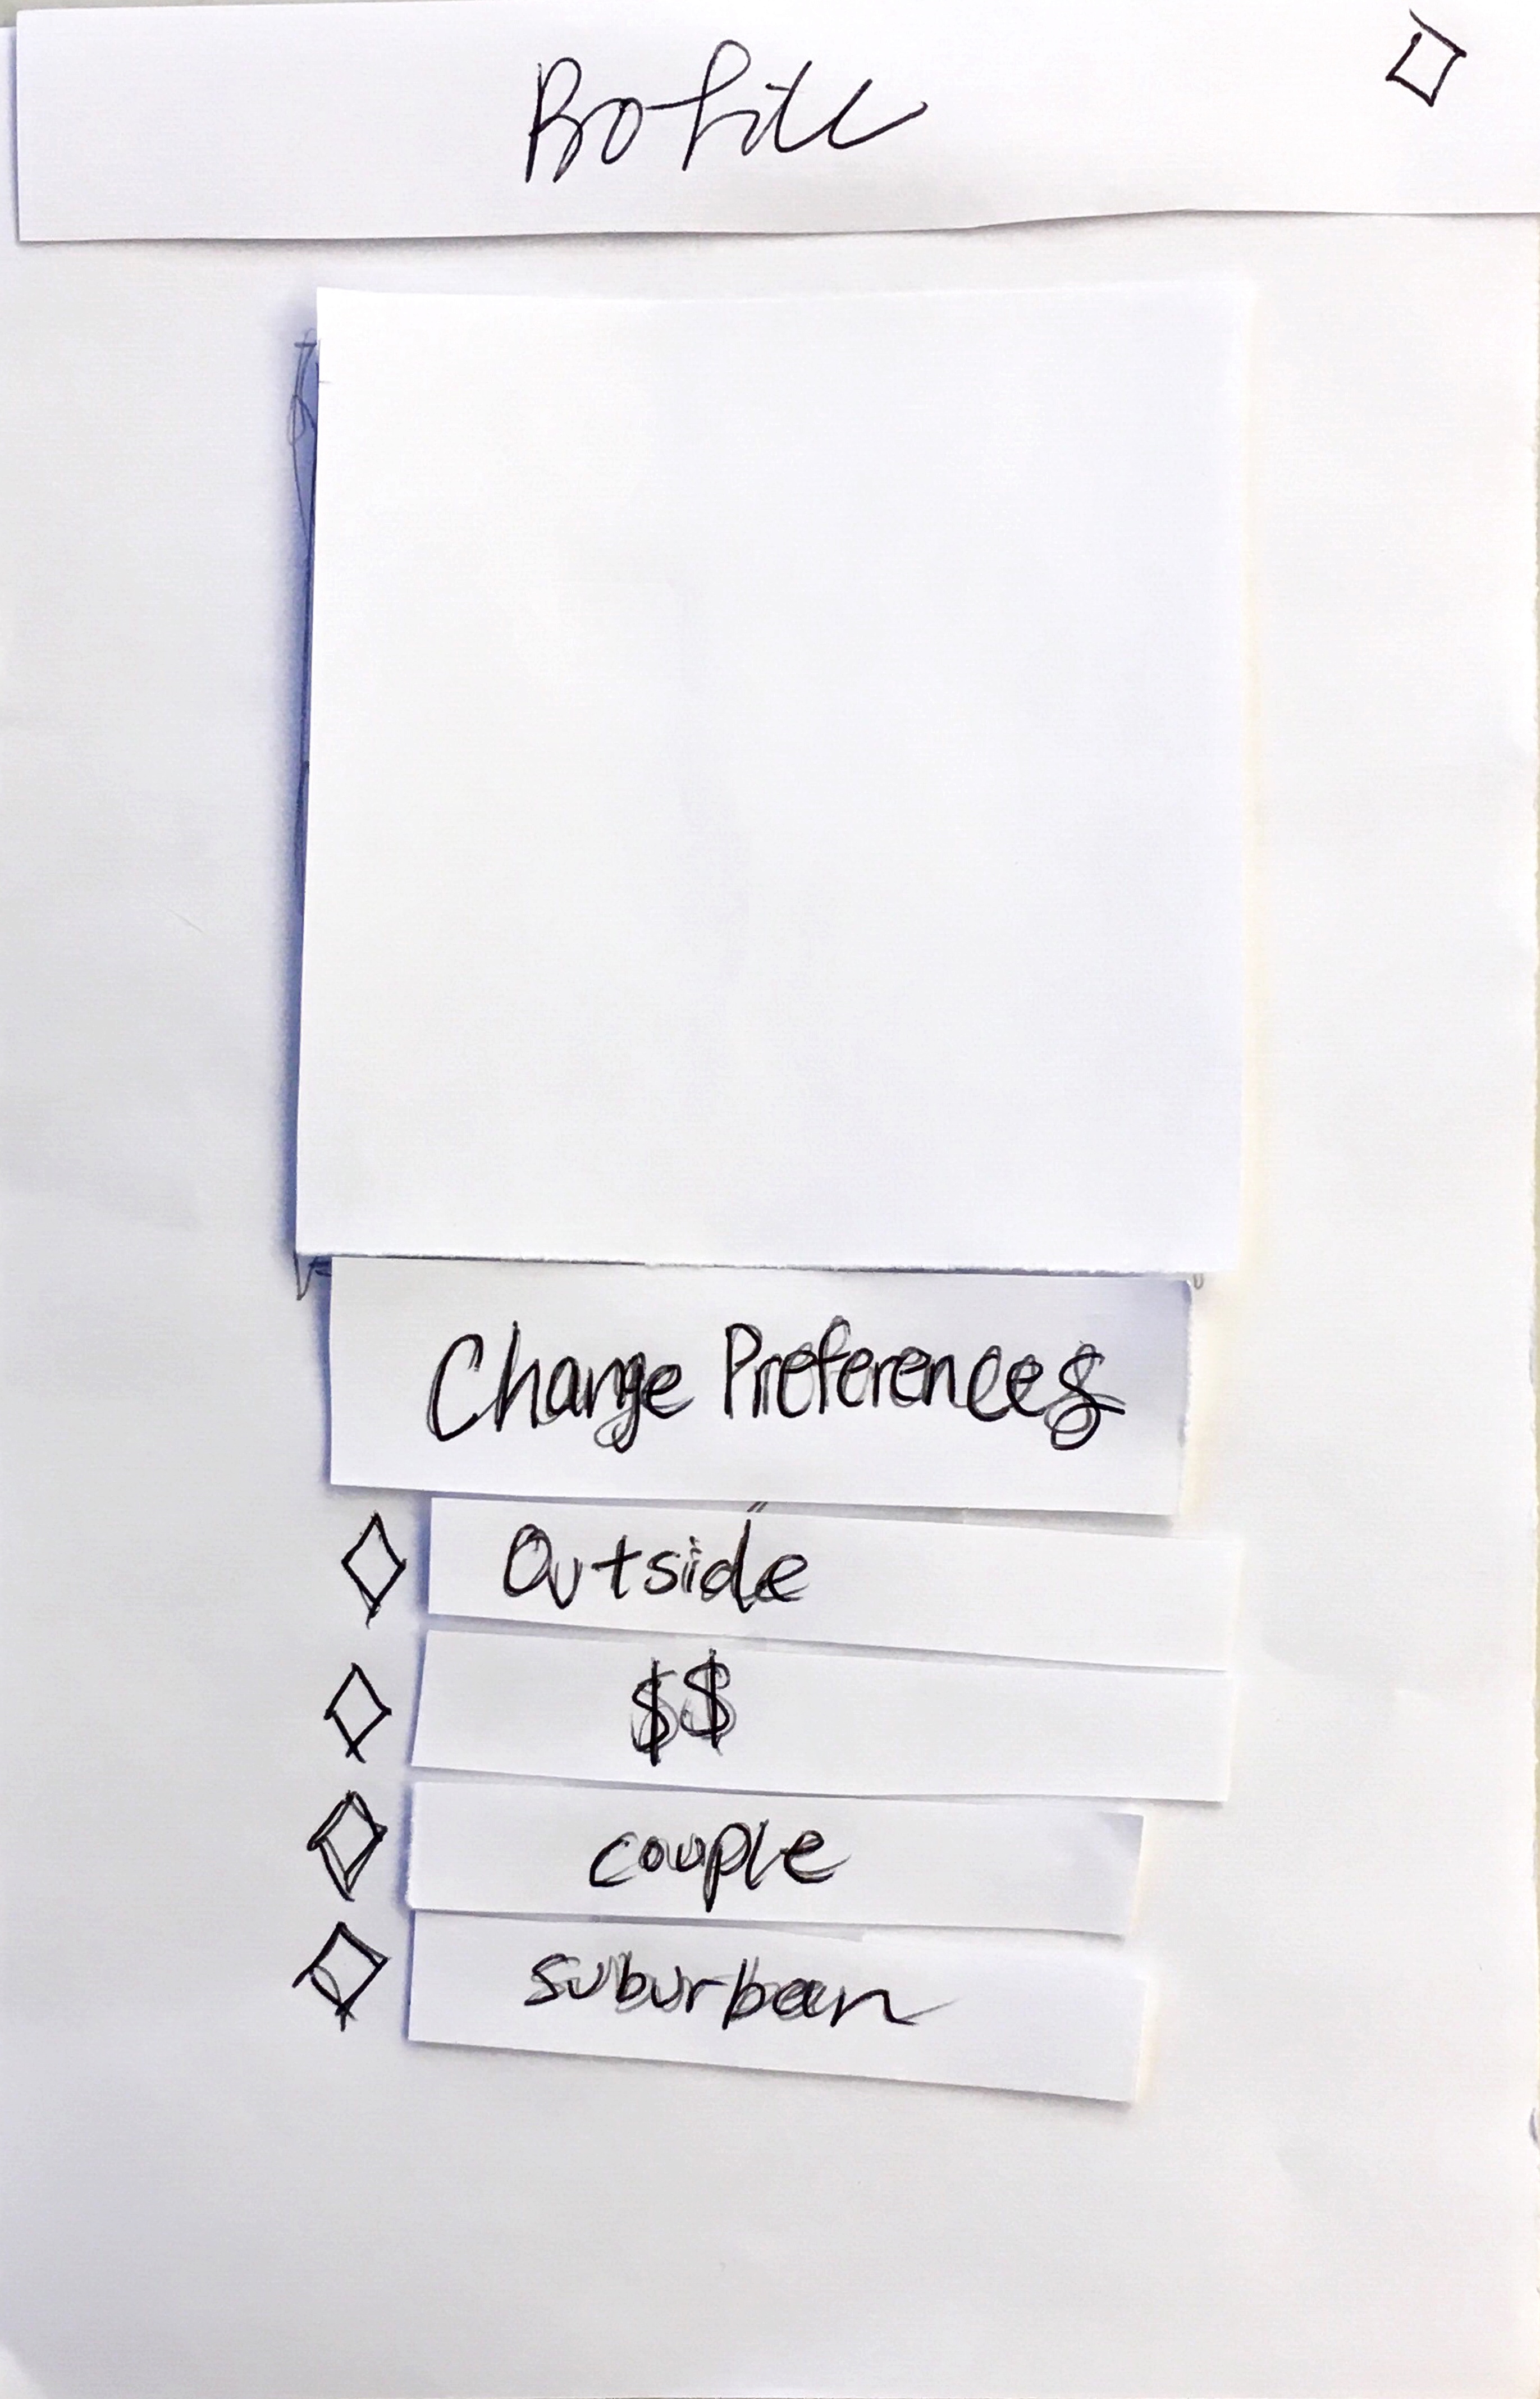 Profile
Change Preferences
Outside
$$
couple
suburban